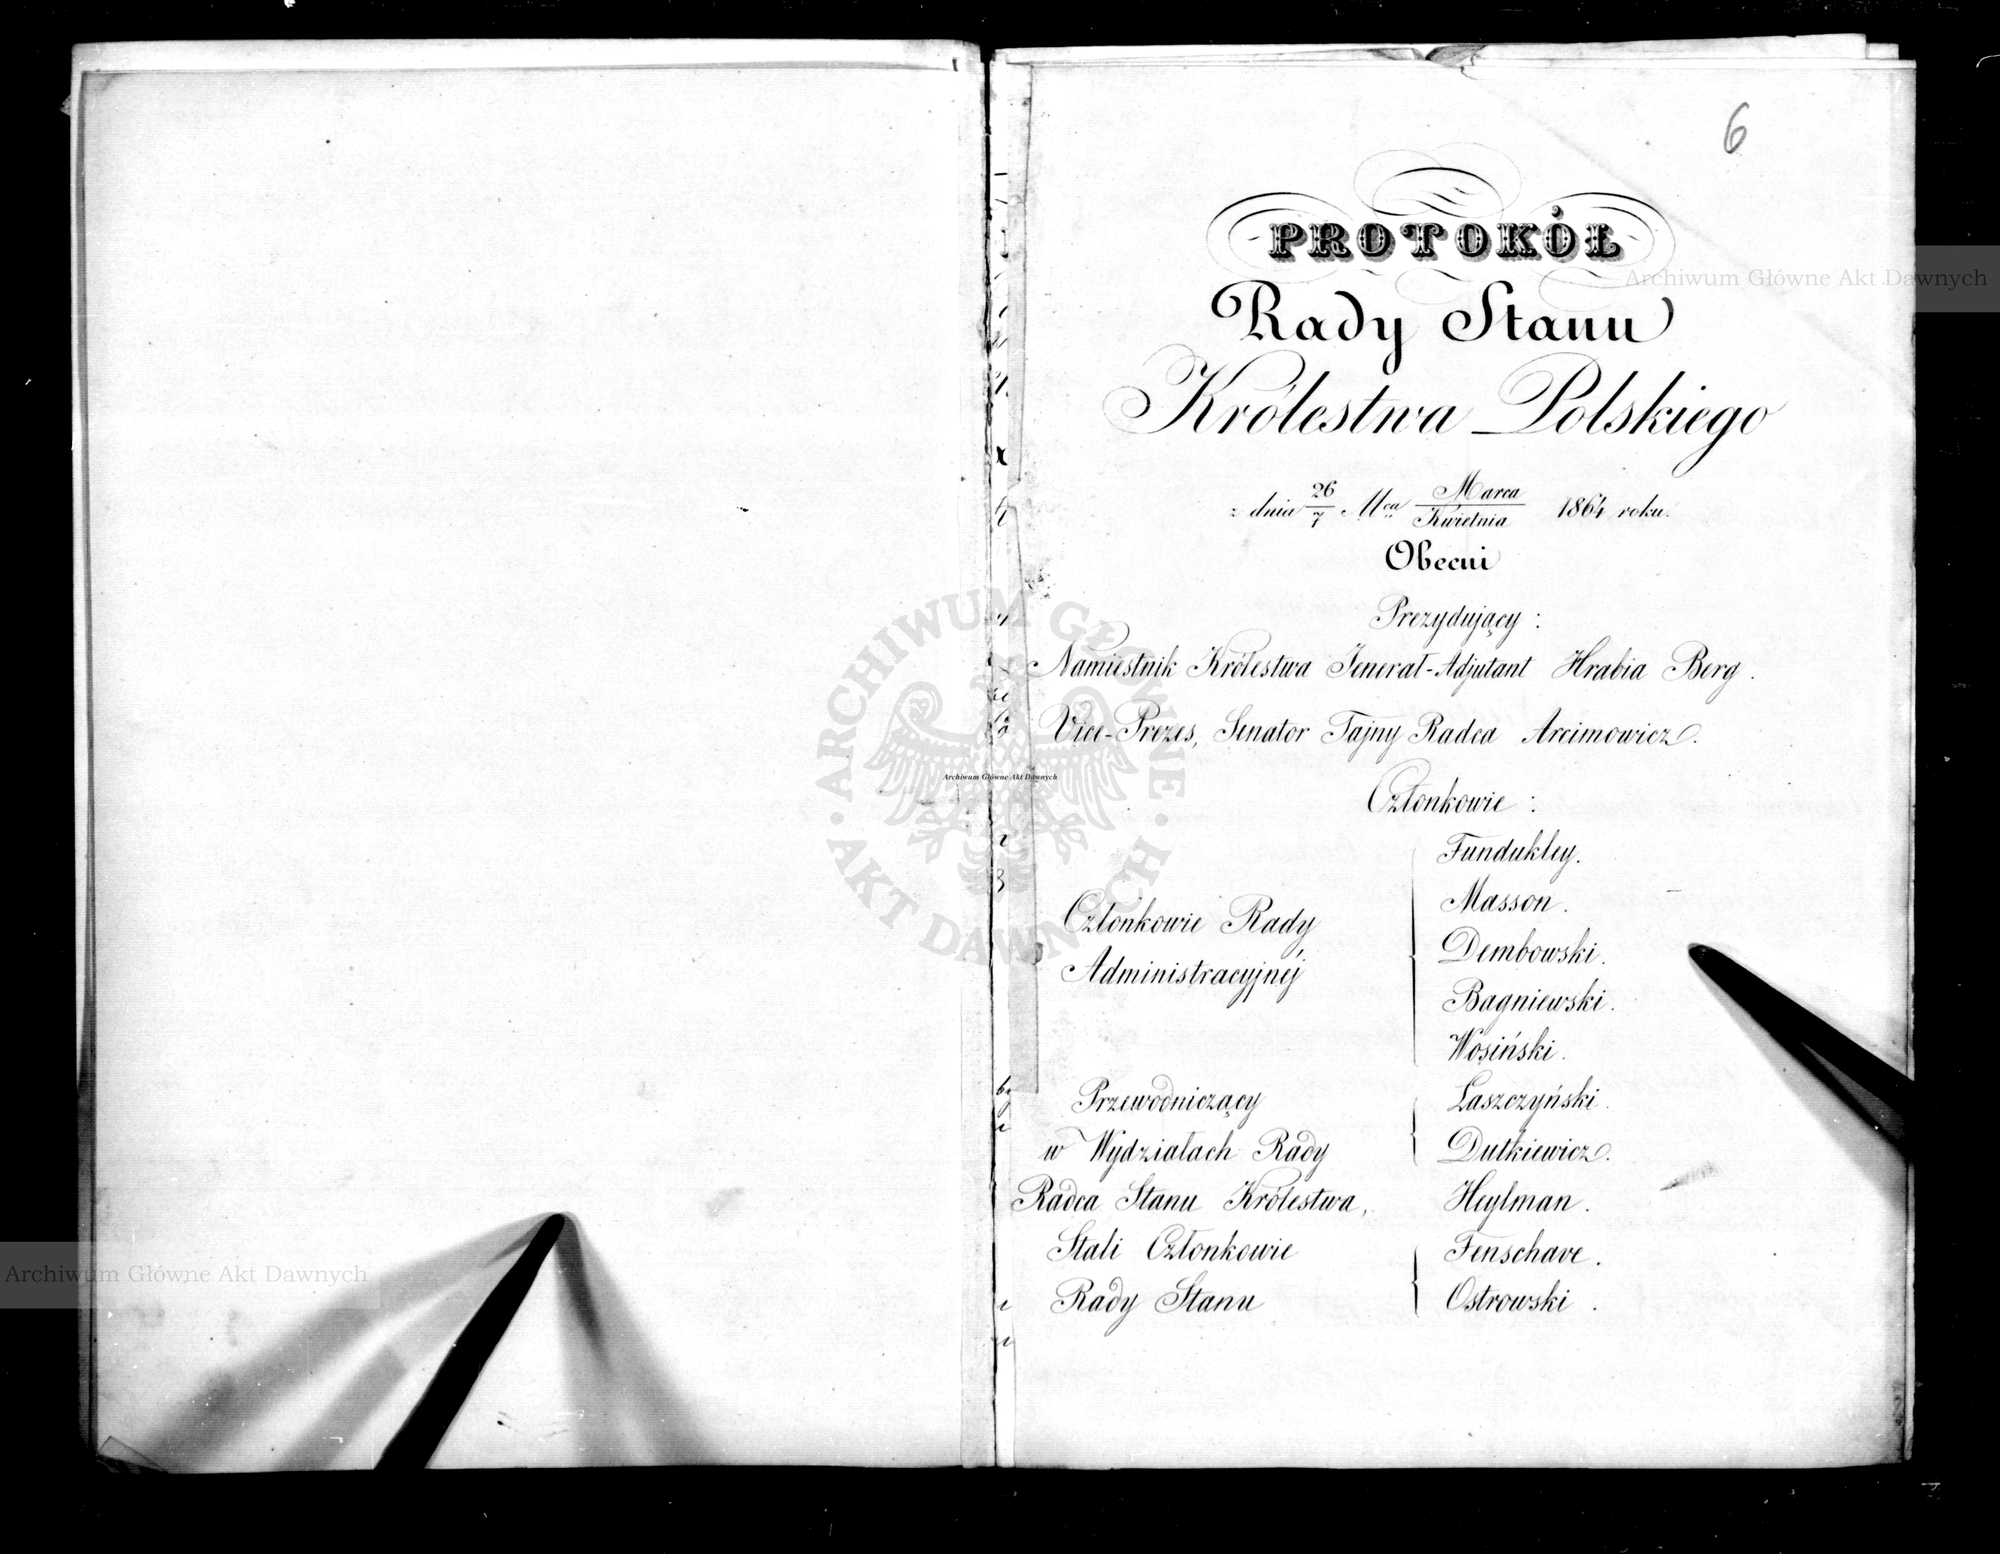 6
PROTOKÓŁ
Rady Stanu
Królestwa Polskiego
z dnia 26/7 Mca Marca/Kwietnia 1864 roku.
Obecni
Prezydujący:
Namiestnik Królestwa Jenerał-Adjutant Hrabia Berg.
Vice-Prezes, Senator Tajny Radca Arcimowicz.
Członkowie:
Członkowie Rady
Administracyjnéj
Fundukley.
Masson.
Dembowski.
Bagniewski.
Wosiński.
Przewodniczący
w Wydziałach Rady
Łaszczyński.
Dutkiewicz.
Radca Stanu Królestwa, Heylman.
Stali Członkowie
Rady Stanu
Fenschave.
Ostrowski.
Archiwum Główne Akt Dawnych
Archiwum Główne Akt Dawnych
Archiwum Główne Akt Dawnych
ARCHIWUM GŁÓWNE AKT DAWNYCH